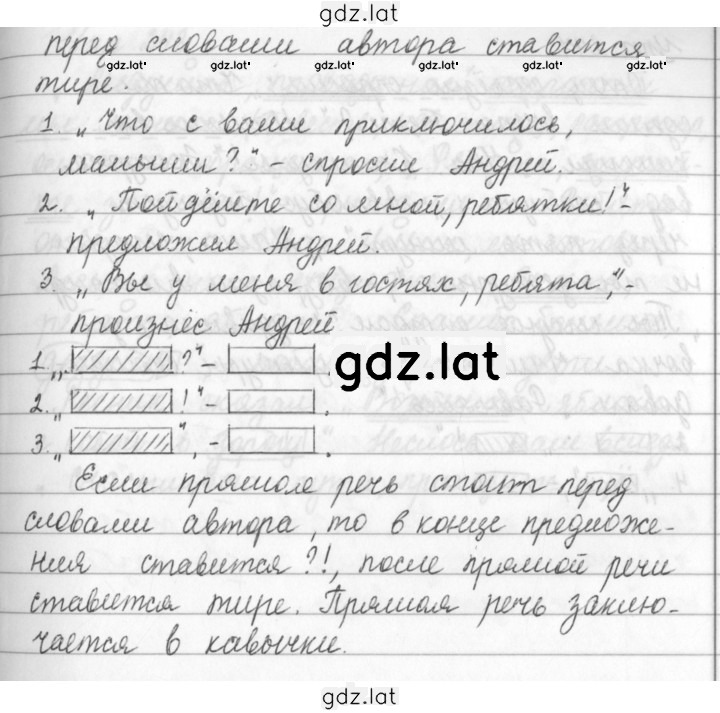 gdz.lat
перед словами автора ставится
gdz.lat gdz.lat gdz.lat gdz.lat gdz.lat gdz.lat gdz.lat gdz.lat
тире.
1. „Что с вами приключилось,
малыши?“ – спросил Андрей.
2. „Пойдёмте со мной, ребятки!“ –
предложил Андрей.
3. „Вы у меня в гостях, ребята“, –
произнёс Андрей
1. „ ?“ – .
gdz.lat
2. „ !“ – .
3. „ “, – .
Если прямая речь стоит перед
словами автора, то в конце предложе-
ния ставится ?!, после прямой речи
ставится тире. Прямая речь заклю-
чается в кавычки.
gdz.lat